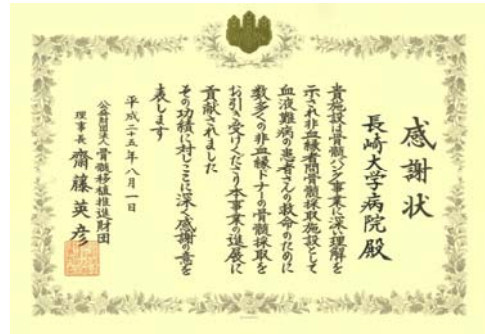 感謝状
長崎大学病院殿
貴施設は骨髄バンク事業に深い理解を
示され非血縁者間骨髄採取施設として
血液難病の患者さんの救命のために
数多くの非血縁ドナーの骨髄採取を
お引き受けくださり本事業の進展に
貢献されました
その功績に対しここに深く感謝の意を
表します
平成二十五年八月一日
公益財団法人骨髄移植推進財団
理事長 齋藤英彦